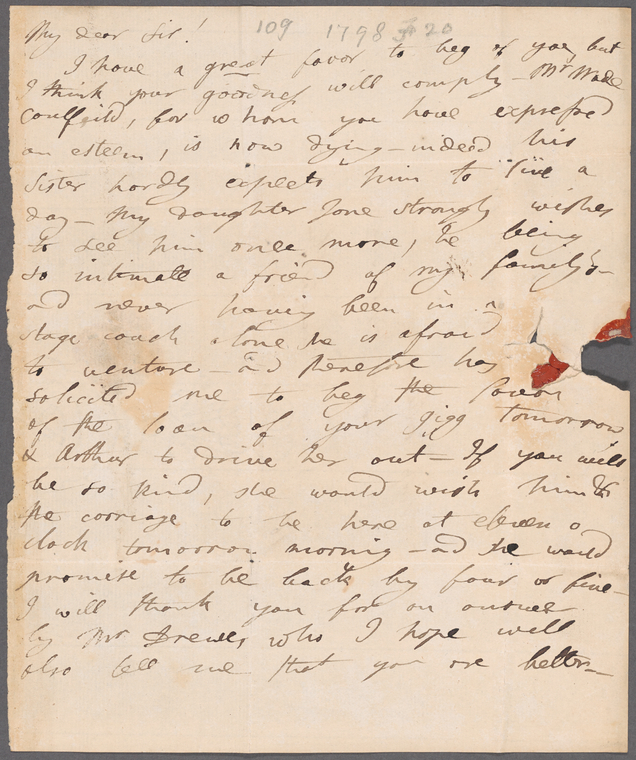 109 1798 20
My dear Sir!
I have a great favor to beg of you, but
I think your goodness will comply – Mr Wade
Caulfeild, for whom you have expressed
an esteem, is now dying – indeed his
Sister hardly expects him to live a
day – My daughter Jane strongly wishes
to see him once more, he being
so intimate a friend of my family's –
and never having been in a
stage coach alone she is afraid
to venture – and therefore has
solicited me to beg the favor
of the loan of your gigg tomorrow
& Arthur to drive her out – If you will
be so kind, she would wish him &
the carriage to be here at eleven o
clock tomorrow morning – and she would
promise to be back by four or five –
I will thank you for an answer
by Mr Drewes who I hope will
also tell me that you are better –